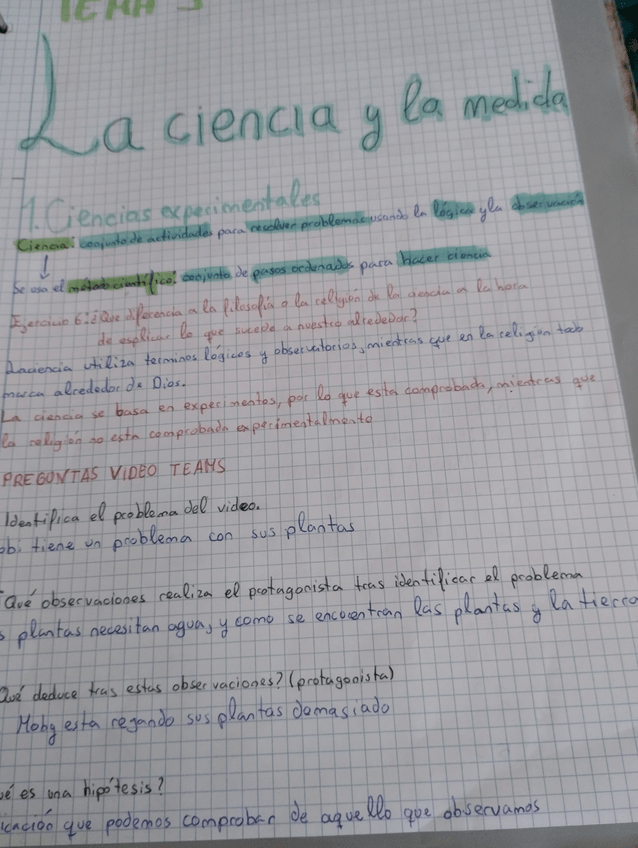 TEMA 3
La ciencia y la medida
1. Ciencias experimentales
Ciencia: conjunto de actividades para resolver problemas usando la lógica y la observación
Se usa el método científico: conjunto de pasos ordenados para hacer ciencia
Ejercicio 6: ¿Que diferencia a la filosofía o la religión de la ciencia a la hora
de explicar lo que sucede a nuestro alrededor?
La ciencia utiliza terminos lógicos y observatorios, mientras que en la religion todo
marca alrededor de Dios.
La ciencia se basa en experimentos, por lo que esta comprobada, mientras que
la religion no esta comprobada experimentalmente
PREGUNTAS VIDEO TEAMS
Identifica el problema del video.
tiene un problema con sus plantas
Qué observaciones realiza el protagonista tras identificar el problema
plantas necesitan agua, y como se encuentran las plantas y la tierra
Qué deduce tras estas observaciones? (protagonista)
Moby esta regando sus plantas demasiado
es una hipótesis?
que podemos comprobar de aquello que observamos